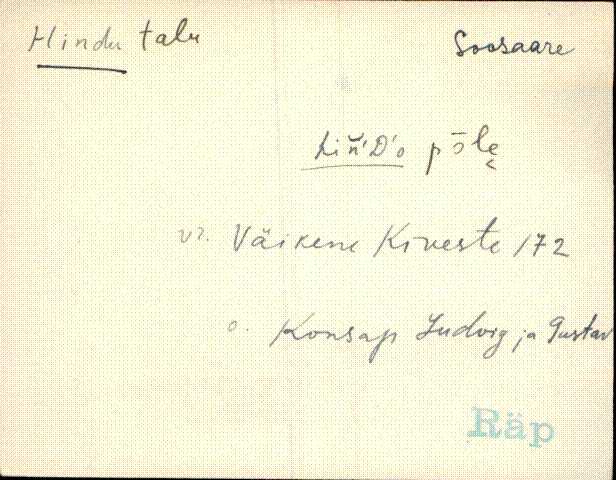 Hindu talu Soosaare
hiñ'D'o pōle
vr. Väikene Kiveste 172
o. Konsap Ludvig ja Gustav
Räp